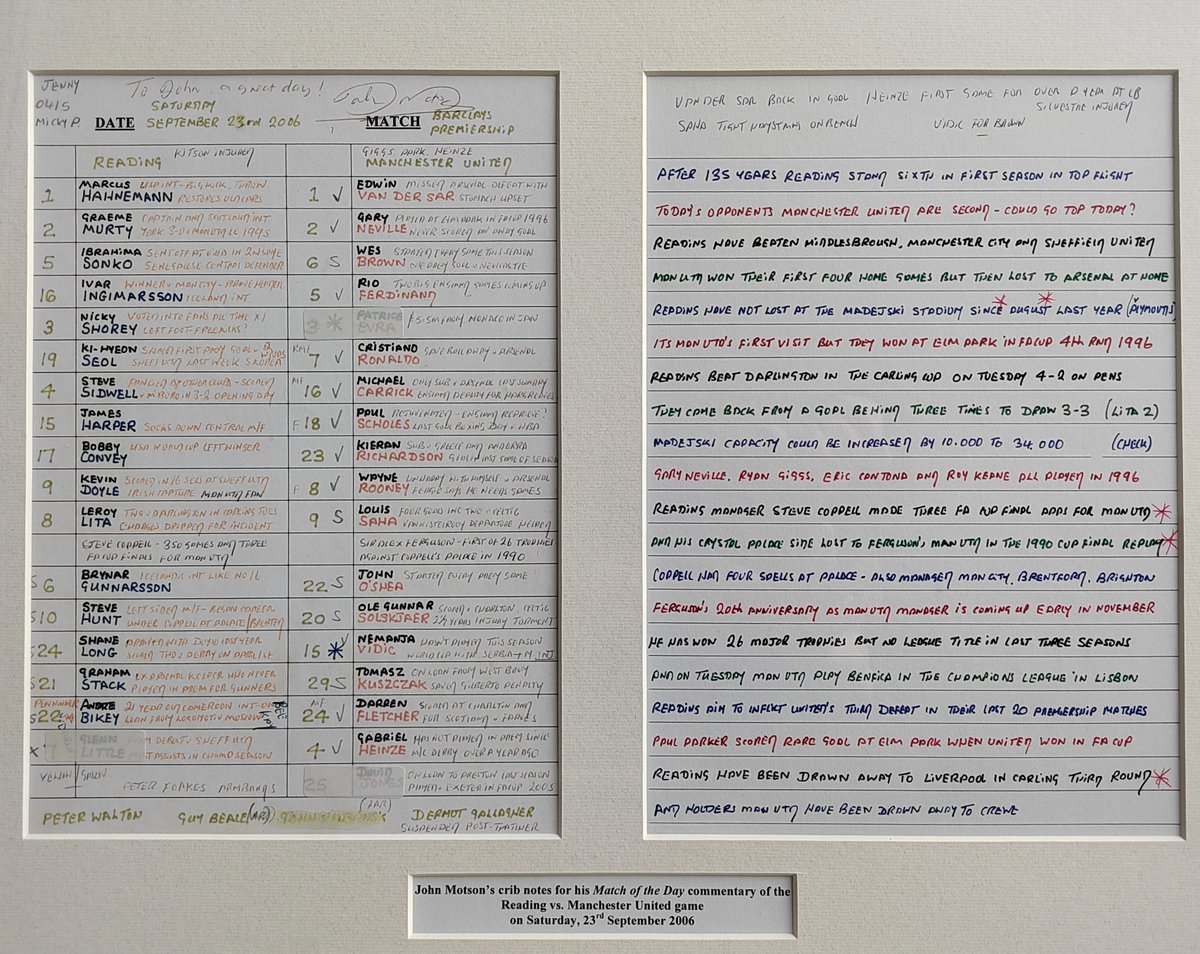 JENNY
0415
MICKY P.
To John, a great day!
John Motson
SATURDAY
DATE SEPTEMBER 23rd 2006
MATCH BARCLAYS PREMIERSHIP
READING KITSON INJURED
GIGGS, PARK, HEINZE
MANCHESTER UNITED
1 MARCUS HAHNEMANN USA INT - BIG KICK, THROW
1 ✓ EDWIN VAN DER SAR MISSED ARSENAL DEFEAT WITH STOMACH UPSET
2 GRAEME MURTY CAPTAIN AND SCOTLAND INT YORK 3-0 V MAN UTD LC 1995
2 ✓ GARY NEVILLE PLAYED AT ELM PARK IN FA CUP 1996 NEVER SCORED AN AWAY GOAL
5 IBRAHIMA SONKO SENT OFF AT VILLA IN 2ND GAME SENEGALESE CENTRAL DEFENDER
6 S WES BROWN STARTED EVERY GAME THIS SEASON ONE PREM GOAL V NEWCASTLE
16 IVAR INGIMARSSON WINNER V MAN CITY - BRAVE HEADER ICELAND INT
5 ✓ RIO FERDINAND TWO BIG ENGLAND GAMES COMING UP
3 NICKY SHOREY VOTED INTO FANS ALL TIME XI LEFT FOOT - FREE KICKS?
3 * PATRICE EVRA £5.5M FROM MONACO IN JAN
19 KI-HYEON SEOL SCORED FIRST PREM GOAL V SHEFF UTD LAST WEEK S KOREA
7 ✓ CRISTIANO RONALDO GAVE BALL AWAY V ARSENAL
4 STEVE SIDWELL FANCIED BY OTHER CLUBS - SCORED V M'BORO IN 3-2 OPENING DAY
MF 16 ✓ MICHAEL CARRICK ONLY SUB V ARSENAL LAST SUNDAY ENGLAND DEPUTY FOR HARGREAVES
15 JAMES HARPER SOCKS DOWN CENTRAL M/F
F 18 ✓ PAUL SCHOLES REJUVENATED - ENGLAND REPRIEVE? LAST GOAL BOXING DAY V WBA
17 BOBBY CONVEY USA WORLD CUP LEFT WINGER
23 ✓ KIERAN RICHARDSON SUB V GREECE AND ANDORRA
9 KEVIN DOYLE SCORED IN 16 SECS AT SHEFF UTD IRISH CAPTURE MAN UTD FAN
F 8 ✓ WAYNE ROONEY UNHAPPY WITH HIMSELF V ARSENAL FERGIE SAYS HE NEEDS GAMES
8 LEROY LITA TWO V DARLINGTON IN CARLING TUES CHARGES DROPPED FOR INCIDENT
9 S LOUIS SAHA FOUR GOALS INC TWO V CELTIC VAN NISTELROOY DEPARTURE HELPED
STEVE COPPELL - 350 GAMES AND THREE FA CUP FINALS FOR MAN UTD
SIR ALEX FERGUSON - FIRST OF 26 TROPHIES AGAINST COPPELL'S PALACE IN 1990
S 6 BRYNAR GUNNARSSON ICELANDIC INT LIKE NO 16
22 S JOHN O'SHEA STARTED EVERY PREM GAME
S 10 STEVE HUNT LEFT SIDED M/F - BEGAN CAREER UNDER COPPELL AT PALACE
20 S OLE GUNNAR SOLSKJAER SCORED V CHARLTON, CELTIC 2½ YEARS INJURY TORMENT
S 24 SHANE LONG ARRIVED WITH DOYLE LAST YEAR
15 * ✓ NEMANJA VIDIC HASN'T PLAYED THIS SEASON WORLD CUP WITH SERBIA + M INJ.
S 21 GRAHAM STACK EX ARSENAL KEEPER WHO NEVER PLAYED IN PREM FOR GUNNERS
29 S TOMASZ KUSZCZAK ON LOAN FROM WEST BROM SAVED GILBERTO PENALTY
S 22 ANDRE BIKEY 21 YEAR OLD CAMEROON INT ON LOAN FROM LOKOMOTIV MOSCOW
MF 24 ✓ DARREN FLETCHER SCORED AT CHARLTON AND FOR SCOTLAND V FAROES
GLENN LITTLE DEBUT V SHEFF UTD ASSISTS IN CHAMP SEASON
4 ✓ GABRIEL HEINZE HAS NOT PLAYED IN PREM SINCE M/C DERBY OVER YEAR AGO
PETER FOAKES ARMBANDS
25 DAVID JONES ON LOAN TO PRESTON LAST SEASON PLAYED V EXETER IN FA CUP 2005
PETER WALTON GUY BEALE (AR) DERMOT GALLAGHER
SUSPENDED
VAN DER SAR BACK IN GOAL HEINZE FIRST GAME FOR OVER A YEAR AT LB
SILVESTRE INJURED
SAHA TIGHT HAMSTRING ON BENCH VIDIC FOR BROWN
AFTER 135 YEARS READING STAND SIXTH IN FIRST SEASON IN TOP FLIGHT
TODAY'S OPPONENTS MANCHESTER UNITED ARE SECOND - COULD GO TOP TODAY?
READING HAVE BEATEN MIDDLESBROUGH, MANCHESTER CITY AND SHEFFIELD UNITED
MAN UTD WON THEIR FIRST FOUR HOME GAMES BUT THEN LOST TO ARSENAL AT HOME
READING HAVE NOT LOST AT THE MADEJSKI STADIUM SINCE AUGUST LAST YEAR (PLYMOUTH)
ITS MAN UTD'S FIRST VISIT BUT THEY WON AT ELM PARK IN FA CUP 4TH RND 1996
READING BEAT DARLINGTON IN THE CARLING CUP ON TUESDAY 4-2 ON PENS
THEY CAME BACK FROM A GOAL BEHIND THREE TIMES TO DRAW 3-3 (LITA 2)
MADEJSKI CAPACITY COULD BE INCREASED BY 10.000 TO 34.000 (CHECK)
GARY NEVILLE, RYAN GIGGS, ERIC CANTONA AND ROY KEANE ALL PLAYED IN 1996
READING MANAGER STEVE COPPELL MADE THREE FA CUP FINAL APPS FOR MAN UTD *
AND HIS CRYSTAL PALACE SIDE LOST TO FERGUSON'S MAN UTD IN THE 1990 CUP FINAL REPLAY *
COPPELL HAD FOUR SPELLS AT PALACE - ALSO MANAGED MAN CITY, BRENTFORD, BRIGHTON
FERGUSON'S 20TH ANNIVERSARY AS MAN UTD MANAGER IS COMING UP EARLY IN NOVEMBER
HE HAS WON 26 MAJOR TROPHIES BUT NO LEAGUE TITLE IN LAST THREE SEASONS
AND ON TUESDAY MAN UTD PLAY BENFICA IN THE CHAMPIONS LEAGUE IN LISBON
READING AIM TO INFLICT UNITED'S THIRD DEFEAT IN THEIR LAST 20 PREMIERSHIP MATCHES
PAUL PARKER SCORED RARE GOAL AT ELM PARK WHEN UNITED WON IN FA CUP
READING HAVE BEEN DRAWN AWAY TO LIVERPOOL IN CARLING THIRD ROUND *
AND HOLDERS MAN UTD HAVE BEEN DRAWN AWAY TO CREWE
John Motson's crib notes for his Match of the Day commentary of the
Reading vs. Manchester United game
on Saturday, 23rd September 2006